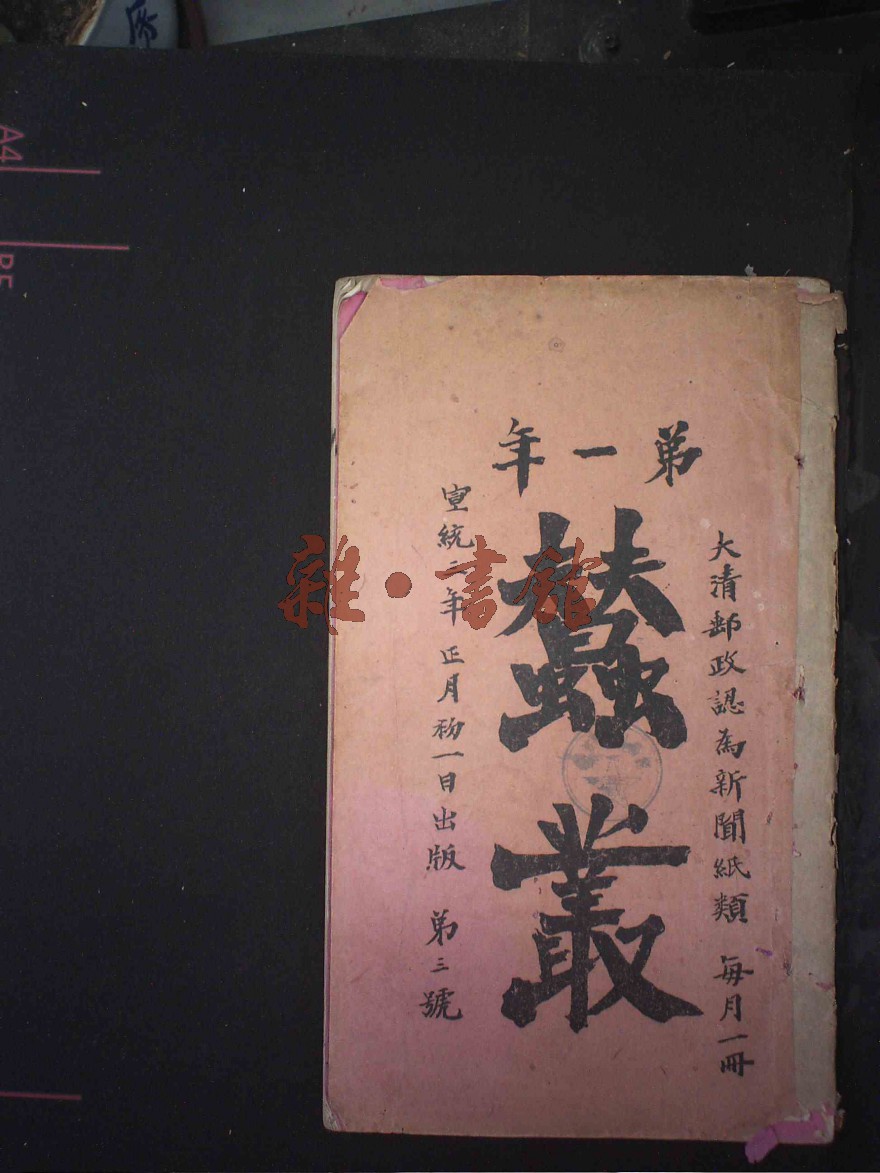 弟一年
大清郵政認為新聞紙類 每月一冊
蠺叢
宣統二年正月初一日出版 弟三號
雜·書館
A4
B5